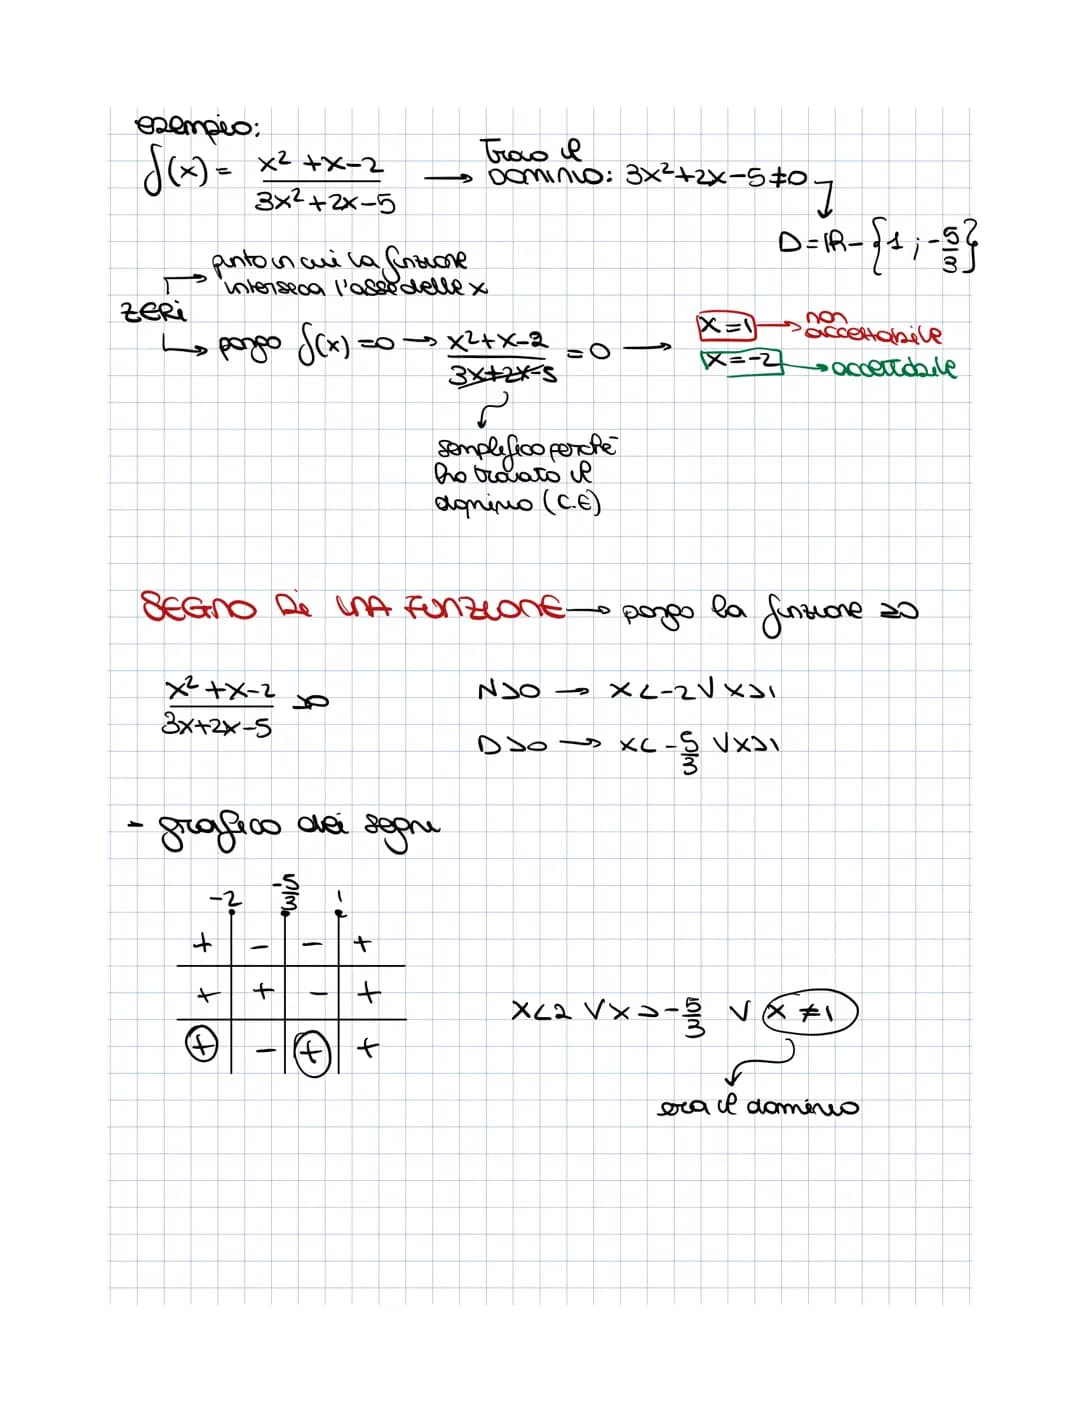 esempio:
f(x) = x² + x - 2 / 3x² + 2x - 5 → Trovo il Dominio: 3x² + 2x - 5 ≠ 0
D = R - {1 ; -5/3}
punto in cui la funzione
interseca l'asse delle x
ZERI
pongo f(x) = 0 → x² + x - 2 / 3x + 2x - 5 = 0 →
x = 1 → non accettabile
x = -2 → accettabile
semplifico perché
ho trovato il
dominio (C.E)
SEGNO DI UNA FUNZIONE → pongo la funzione ≥0
x² + x - 2 / 3x + 2x - 5 >0
N>0 → x < -2 ∨ x > 1
D>0 → x < -5/3 ∨ x > 1
- grafico dei segni
-2 -5/3 1
+ - - +
+ + - +
+ - + +
x < 2 ∨ x > -5/3 ∨ x ≠ 1
era il dominio